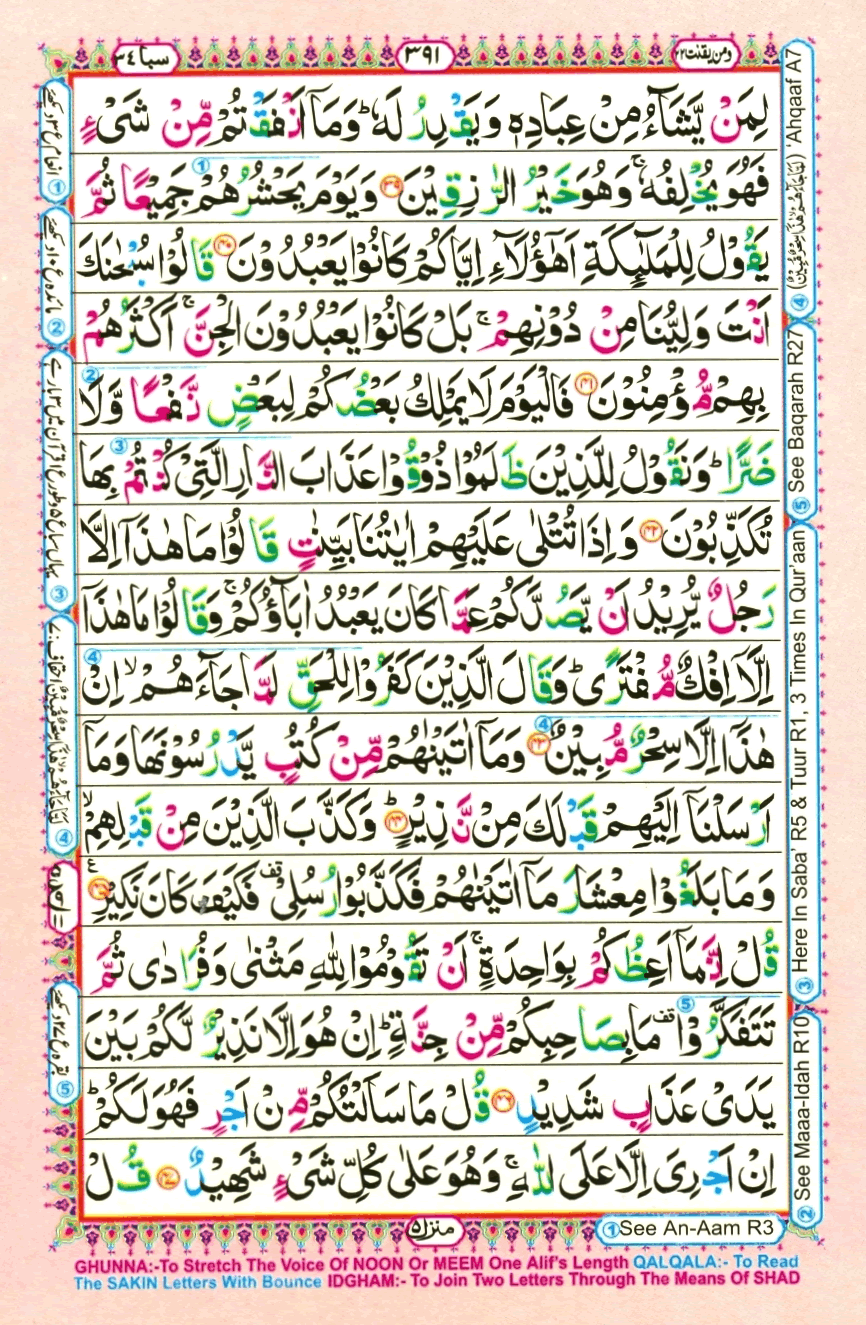 ومن يقنت ٢٢
٣٩١
سبا ٣٤
لِمَنْ يَّشَآءُ مِنْ عِبَادِهٖ وَيَقْدِرُ لَهٗ ؕ وَمَآ اَنْفَقْتُمْ مِّنْ شَیْءٍ
فَهُوَ يُخْلِفُهٗ ۚ وَهُوَ خَيْرُ الرّٰزِقِيْنَ ٣٩ وَيَوْمَ يَحْشُرُهُمْ جَمِيْعًا ثُمَّ
يَقُوْلُ لِلْمَلٰٓئِكَةِ اَهٰٓؤُلَآءِ اِيَّاكُمْ كَانُوْا يَعْبُدُوْنَ ٤٠ قَالُوْا سُبْحٰنَكَ
اَنْتَ وَلِيُّنَا مِنْ دُوْنِهِمْ ۚ بَلْ كَانُوْا يَعْبُدُوْنَ الْجِنَّ ۚ اَكْثَرُهُمْ
بِهِمْ مُّؤْمِنُوْنَ ٤١ فَالْيَوْمَ لَا يَمْلِكُ بَعْضُكُمْ لِبَعْضٍ نَّفْعًا وَّلَا
ضَرًّا ؕ وَنَقُوْلُ لِلَّذِيْنَ ظَلَمُوْا ذُوْقُوْا عَذَابَ النَّارِ الَّتِیْ كُنْتُمْ بِهَا
تُكَذِّبُوْنَ ٤٢ وَاِذَا تُتْلٰی عَلَيْهِمْ اٰيٰتُنَا بَيِّنٰتٍ قَالُوْا مَا هٰذَآ اِلَّا
رَجُلٌ يُّرِيْدُ اَنْ يَّصُدَّكُمْ عَمَّا كَانَ يَعْبُدُ اٰبَآؤُكُمْ ۚ وَقَالُوْا مَا هٰذَآ
اِلَّآ اِفْكٌ مُّفْتَرًی ؕ وَقَالَ الَّذِيْنَ كَفَرُوْا لِلْحَقِّ لَمَّا جَآءَهُمْ ۙ اِنْ
هٰذَآ اِلَّا سِحْرٌ مُّبِيْنٌ ٤٣ وَمَآ اٰتَيْنٰهُمْ مِّنْ كُتُبٍ يَّدْرُسُوْنَهَا وَمَآ
اَرْسَلْنَآ اِلَيْهِمْ قَبْلَكَ مِنْ نَّذِيْرٍ ؕ ٤٤ وَكَذَّبَ الَّذِيْنَ مِنْ قَبْلِهِمْ ۙ
وَمَا بَلَغُوْا مِعْشَارَ مَآ اٰتَيْنٰهُمْ فَكَذَّبُوْا رُسُلِیْ قف فَكَيْفَ كَانَ نَكِيْرِ ٤٥
قُلْ اِنَّمَآ اَعِظُكُمْ بِوَاحِدَةٍ ۚ اَنْ تَقُوْمُوْا لِلّٰهِ مَثْنٰی وَفُرَادٰی ثُمَّ
تَتَفَكَّرُوْا قف مَا بِصَاحِبِكُمْ مِّنْ جِنَّةٍ ؕ اِنْ هُوَ اِلَّا نَذِيْرٌ لَّكُمْ بَيْنَ
يَدَیْ عَذَابٍ شَدِيْدٍ ٤٦ قُلْ مَا سَاَلْتُكُمْ مِّنْ اَجْرٍ فَهُوَ لَكُمْ ؕ
اِنْ اَجْرِیَ اِلَّا عَلَی اللّٰهِ ۚ وَهُوَ عَلٰی كُلِّ شَیْءٍ شَهِيْدٌ ٤٧ قُلْ
④ (لَمَّا جَآءَهُمْ هٰذَا سِحْرٌ مُّبِيْنٌ) 'Ahqaaf A7
⑤ See Baqarah R27
③ Here In Saba' R5 & Tuur R1, 3 Times In Qur'aan
② See Maaa-Idah R10
منزل ٥
①See An-Aam R3
GHUNNA:-To Stretch The Voice Of NOON Or MEEM One Alif's Length QALQALA:- To Read
The SAKIN Letters With Bounce IDGHAM:- To Join Two Letters Through The Means Of SHAD